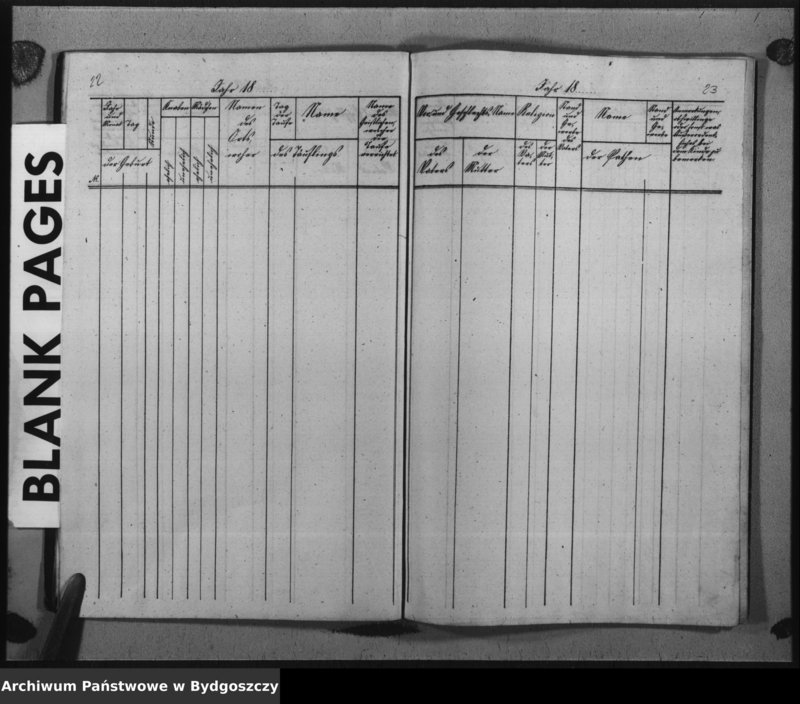 22
Jahr 18
Jahr und Monat
Tag
Stunde
der Geburt
№
Knaben
Mädchen
ehelich
unehelich
ehelich
unehelich
Namen
des
Orts
Tag
der
Taufe
Name
des Täuflings
Name
des
Geistlichen,
welcher
die
Taufe
verrichtet
Jahr 18
23
Vor und Geschlechts Name
des
Vaters
der
Mutter
Religion
des
Va-
ters
der
Mut-
ter
Stand
und
Ge-
werbe
des
Vaters
Name
der Pathen
Stand
und
Ge-
werbe
Bemerkungen,
BLANK PAGES
Archiwum Państwowe w Bydgoszczy